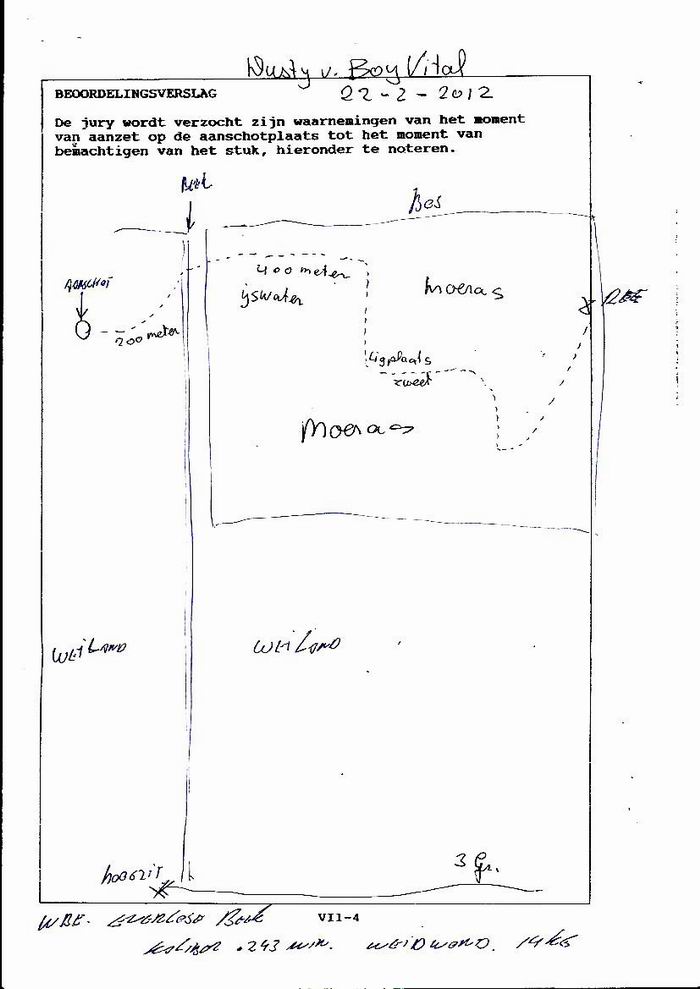 Dusty v. Boy Vital
BEOORDELINGSVERSLAG
22-2-2012
De jury wordt verzocht zijn waarnemingen van het moment
van aanzet op de aanschotplaats tot het moment van
bemachtigen van het stuk, hieronder te noteren.
Beek
Bos
Aanschot
400 meter
Moeras
ijswater
REE
200 meter
Ligplaats
zweet
Moeras
WEILAND
WEILAND
hoogzit
3 Gr.
WBE. EVERLOSE Beek
VII-4
.243 WIN. WEIDWOND. 14 KG